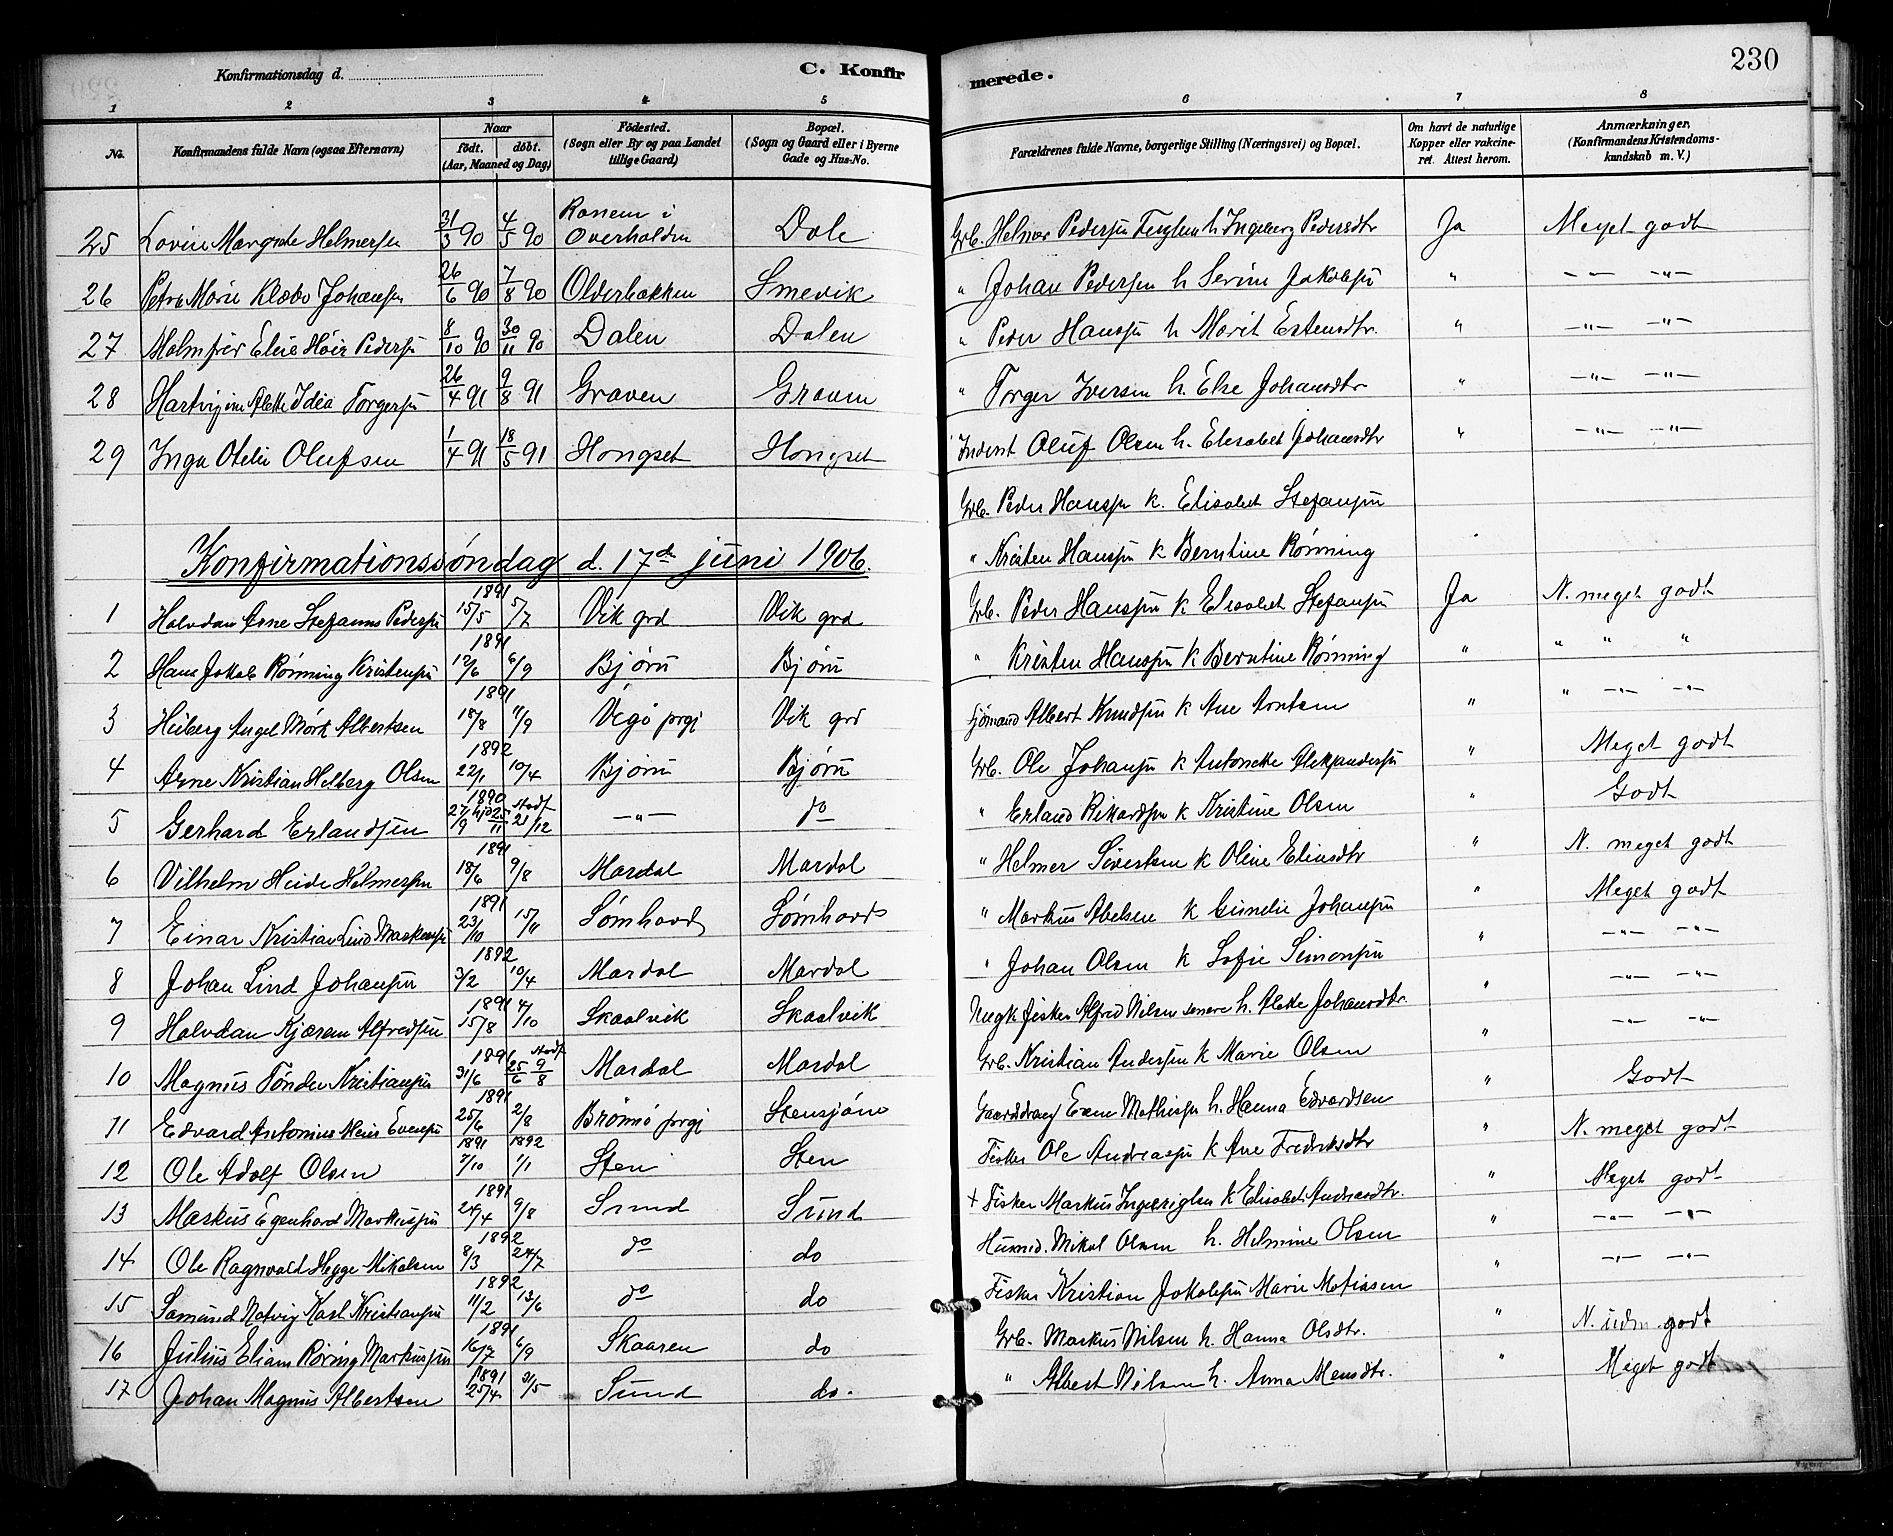 230
Konfirmationsdag d.
C. Konfirmerede.
1 2 3 4 5 6 7 8
No. Konfirmandens fulde Navn (ogsaa Efternavn) Naar födt. döbt. (Aar, Maaned og Dag) Födested. (Sogn eller By og paa Landet tillige Gaard) Bopæl. (Sogn og Gaard eller i Byerne Gade og Hus-No. Forældrenes fulde Navne, borgerlige Stilling (Næringsvei) og Bopæl. Om havt de naturlige Kopper eller vakcineret. Attest herom. Anmærkninger. (Konfirmandens Kristendomskundskab m. V.)
25 Lovise Margrete Helmersen 31/3 90 4/5 90 Ranem i Overhalden Dale Grb. Helmer Pedersen h Ingeborg Pedersdtr Ja Meget godt
26 Petra Marie Klæbo Johansen 26/6 90 7/8 90 Olderbakken Smevik " Johan Pedersen h Serine Jakobsen " -"- -"-
27 Malmfrid Elise Høie Pedersen 8/10 90 30/11 90 Dalen Dalen " Peder Hansen h Marit Estensdtr. " -"- -"-
28 Hartvigine Alette Idea Torgersen 26/4 91 9/8 91 Graven Graven " Torger Iversen h. Else Johansdtr " -"- -"-
29 Inga Otelie Olufsen 1/4 91 18/5 91 Hongset Hongset Inderst Oluf Olsen h. Elisabet Johansdtr " -"- -"-
Grb. Peder Hansen k. Elisabet Stefansen
Konfirmationssøndag d. 17de juni 1906. " Kristen Hansen k Berntine Rønning
1 Halvdan Arne Stefanus Pedersen 1891 15/5 5/7 Vik grd Vik grd Grb. Peder Hansen k Elisabet Stefansen Ja N. meget godt
2 Hans Jakob Rønning Kristensen 1891 12/6 6/9 Bjørn Bjørn " Kristen Hansen k Berntine Rønning " " " "
3 Heiberg Angel Mørk Albertsen 1891 18/8 11/9 Vegø prgj Vik grd Sjømand Albert Knudsen k Ane Arntsen " " -"- -"-
4 Arne Kristian Helberg Olsen 1892 22/1 10/4 Bjørn Bjørn Grb. Ole Johansen k Antonette Aleksandersen " Meget godt
5 Gerhard Erlandsen 1890 27/9 hjd 25/11 stadf 21/12 -"- do " Erland Rikardsen k Kristine Olsen " Godt
6 Vilhelm Heide Helmersen 1891 18/6 9/8 Mardal Mardal " Helmer Sivertsen k Oline Eliasdtr " N. meget godt
7 Einar Kristian Lind Markussen 1891 23/10 15/11 Sømhovd Sømhovd " Markus Abelsen k Gunelie Johansen " Meget godt
8 Johan Lind Johansen 1892 3/2 10/4 Mardal Mardal " Johan Olsen k Sofie Simonsen " -"- -"-
9 Halvdan Kjæran Alfredsen 1891 15/8 4/10 Skaalvik Skaalvik Ungk fisker Alfred Nilsen senere h. Alette Johansdtr. " -"- -"-
10 Magnus Tønder Kristiansen 1891 31/6 25/6 stadf 9/8 Mardal Mardal Grb. Kristian Andersen k Marie Olsen " -"- -"-
11 Edvard Antonius Meus Evensen 1891 25/6 2/8 Brønnø prgj Stensjøen Gaarddreng Even Mathisen h. Hanna Edvardsen " Godt
12 Ole Adolf Olsen 1891 7/10 1892 1/1 Sten Sten Fisker Ole Andreasen k Ane Fredriksdtr " N. meget godt
13 Markus Egenhard Markussen 1891 24/4 9/8 Sund Sund + Fisker Markus Ingebrigtsen k Elisabet Andreasdtr. " Meget godt
14 Ole Ragnvald Hegge Mikalsen 1892 8/3 24/7 do do Husmd. Mikal Olsen h. Helmine Olsen " -"- -"-
15 Samund Natvig Karl Kristiansen 1892 11/2 13/6 do do Fisker Kristian Jakobsen Marie Matiasen " -"- -"-
16 Julius Eliam Røring Markussen 1891 16/7 6/9 Skaaren do Grb. Markus Nilsen h. Hanna Olsdtr. " N. udm. godt
17 Johan Magnus Albertsen 1891 25/4 31/5 Sund do. " Albert Nilsen h. Anna Mensdtr. " Meget godt